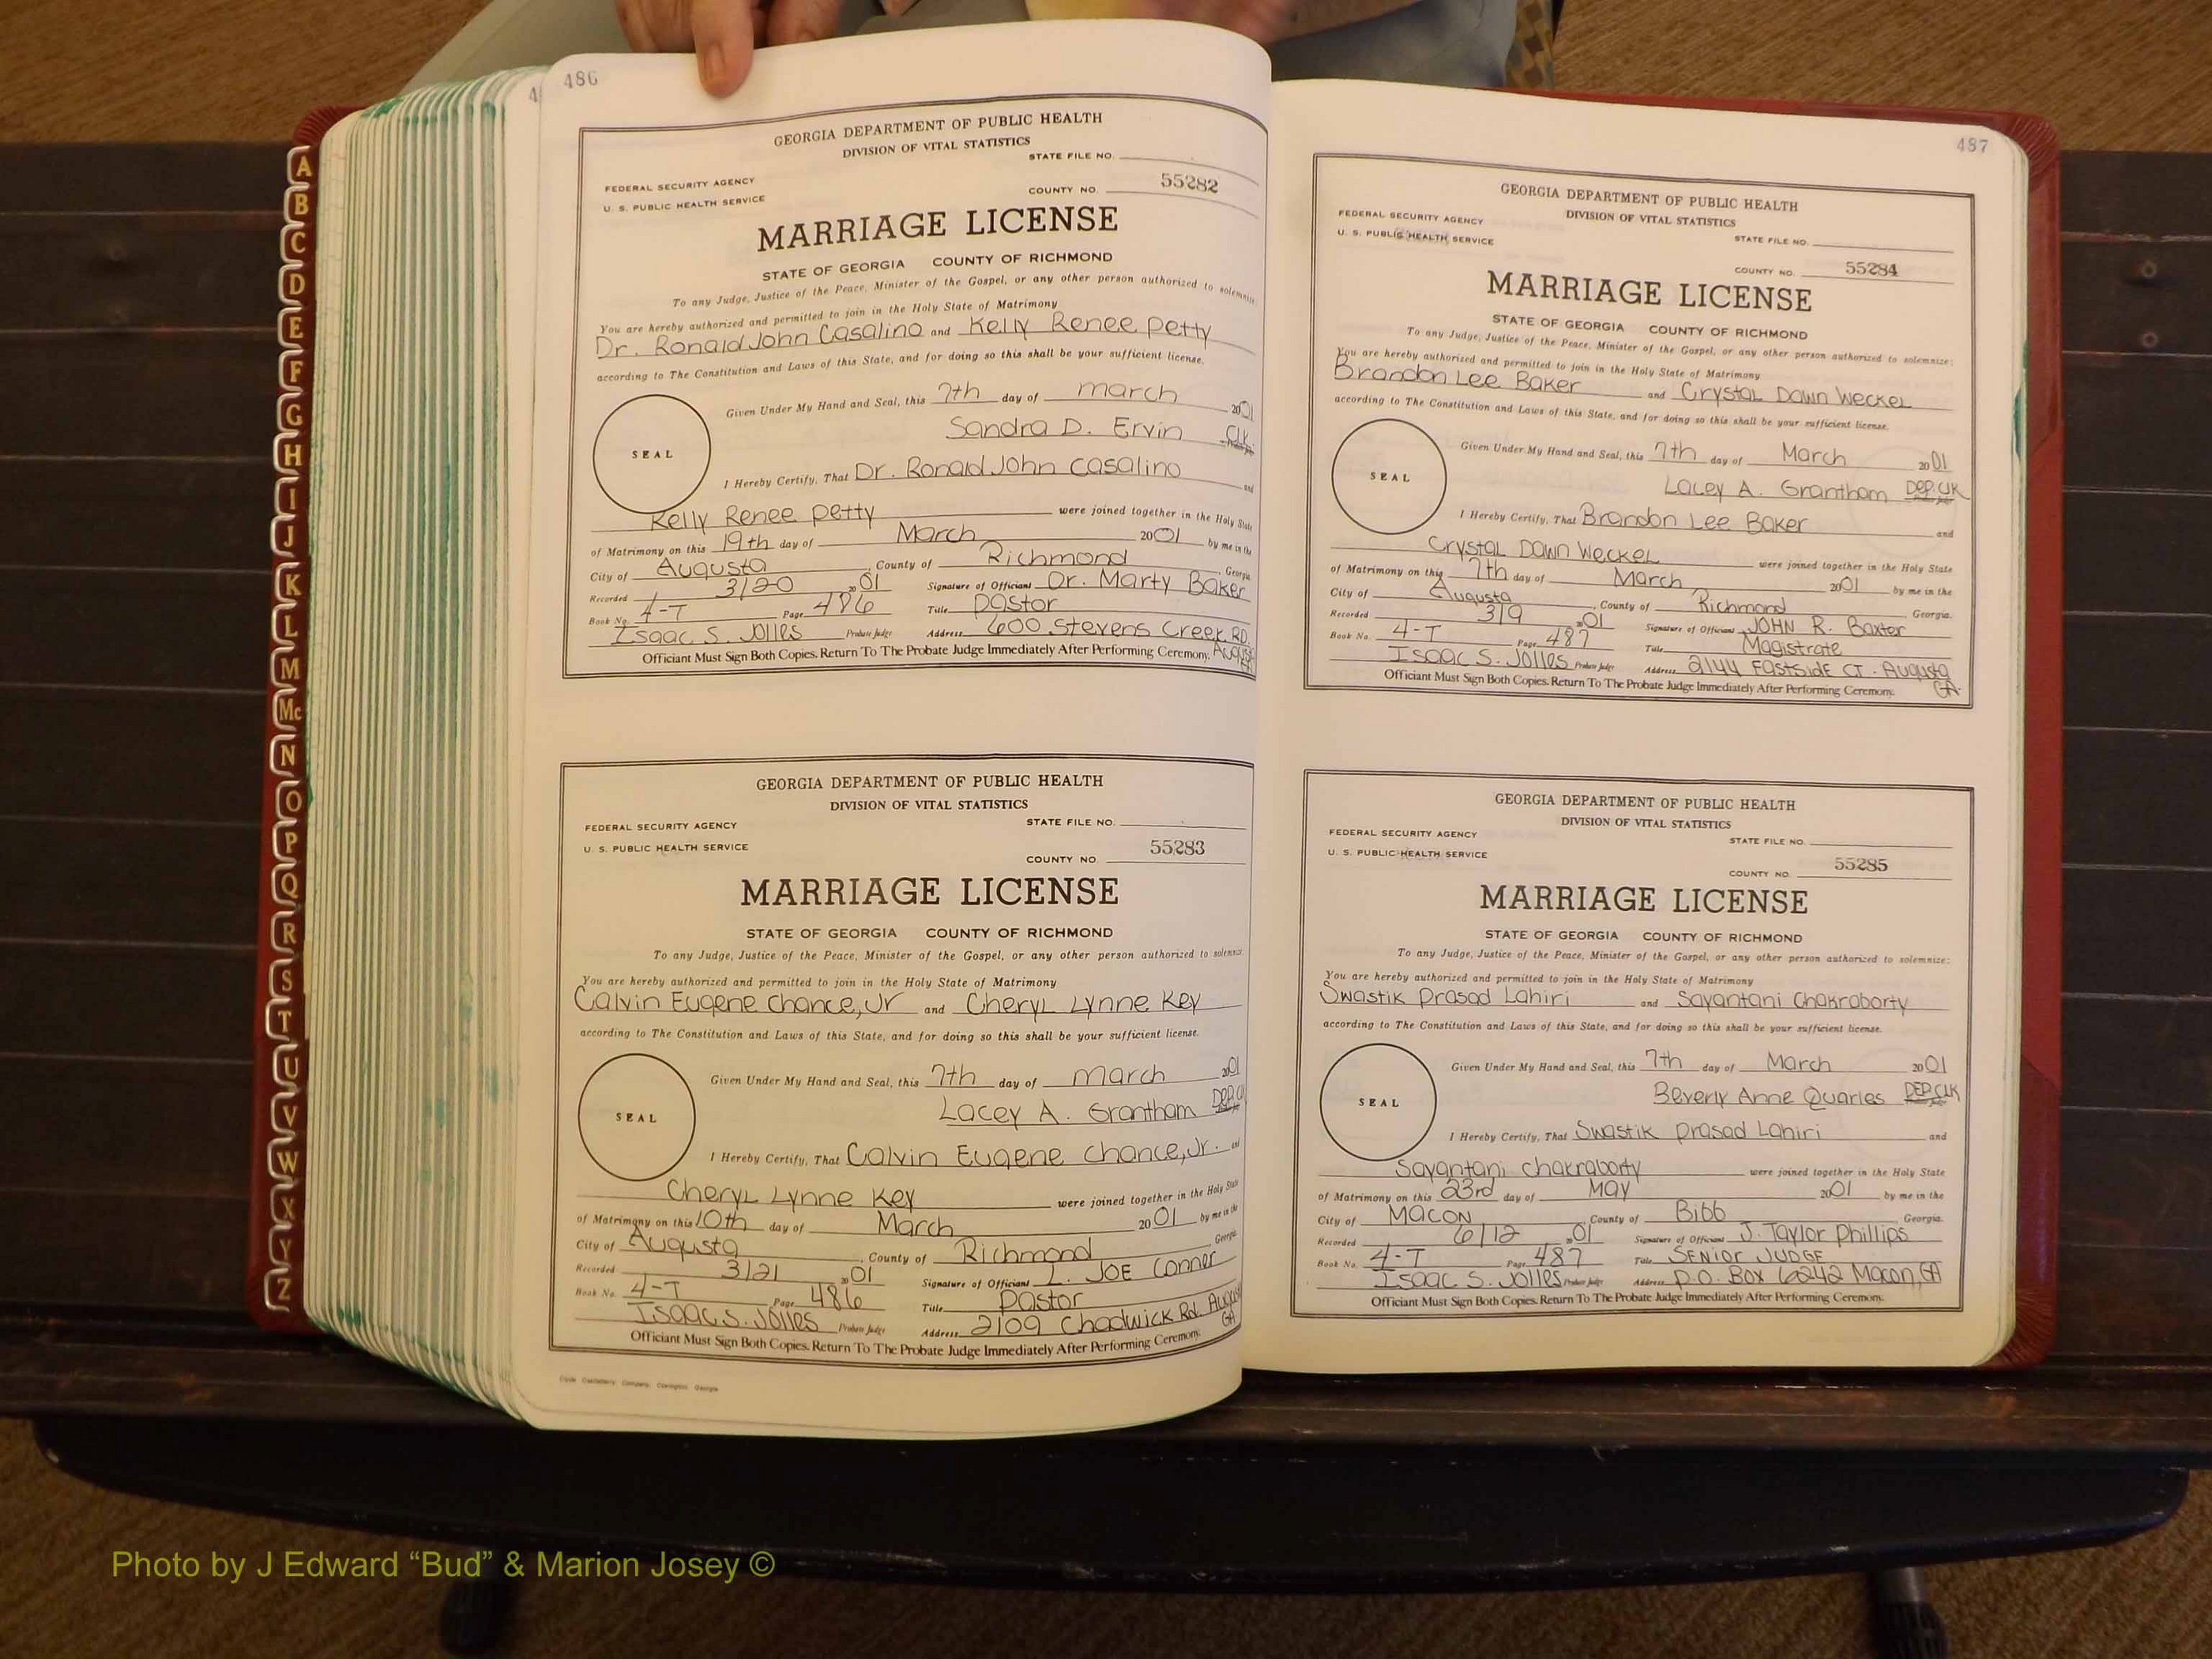 486
GEORGIA DEPARTMENT OF PUBLIC HEALTH
DIVISION OF VITAL STATISTICS
STATE FILE NO.
FEDERAL SECURITY AGENCY
U. S. PUBLIC HEALTH SERVICE
COUNTY NO. 55282
MARRIAGE LICENSE
STATE OF GEORGIA COUNTY OF RICHMOND
To any Judge, Justice of the Peace, Minister of the Gospel, or any other person authorized to solemnize
You are hereby authorized and permitted to join in the Holy State of Matrimony
Dr. Ronald John Casalino and Kelly Renee Petty
according to The Constitution and Laws of this State, and for doing so this shall be your sufficient license.
Given Under My Hand and Seal, this 7th day of March 2001
Sandra D. Ervin Clk.
SEAL
I Hereby Certify, That Dr. Ronald John Casalino and
Kelly Renee Petty were joined together in the Holy State
of Matrimony on this 19th day of March 2001 by me in the
City of Augusta, County of Richmond, Georgia
Recorded 3/20 2001 Signature of Officiant Dr. Marty Baker
Book No. 4-T Page 486 Title Pastor
Isaac S. Jolles Probate Judge Address 600 Stevens Creek RD. Augusta GA
Officiant Must Sign Both Copies. Return To The Probate Judge Immediately After Performing Ceremony.
GEORGIA DEPARTMENT OF PUBLIC HEALTH
DIVISION OF VITAL STATISTICS
STATE FILE NO.
FEDERAL SECURITY AGENCY
U. S. PUBLIC HEALTH SERVICE
COUNTY NO. 55283
MARRIAGE LICENSE
STATE OF GEORGIA COUNTY OF RICHMOND
To any Judge, Justice of the Peace, Minister of the Gospel, or any other person authorized to solemnize:
You are hereby authorized and permitted to join in the Holy State of Matrimony
Calvin Eugene Chance, Jr and Cheryl Lynne Key
according to The Constitution and Laws of this State, and for doing so this shall be your sufficient license.
Given Under My Hand and Seal, this 7th day of March 2001
Lacey A. Grantham Dep. Cl
SEAL
I Hereby Certify, That Calvin Eugene Chance, Jr. and
Cheryl Lynne Key were joined together in the Holy State
of Matrimony on this 10th day of March 2001 by me in the
City of Augusta, County of Richmond Georgia
Recorded 3/21 2001 Signature of Officiant L. JOE Conner
Book No. 4-T Page 486 Title Pastor
Isaac S. Jolles Probate Judge Address 2109 Chadwick Rd. August GA
Officiant Must Sign Both Copies. Return To The Probate Judge Immediately After Performing Ceremony.
487
GEORGIA DEPARTMENT OF PUBLIC HEALTH
DIVISION OF VITAL STATISTICS
FEDERAL SECURITY AGENCY
U. S. PUBLIC HEALTH SERVICE
STATE FILE NO.
COUNTY NO. 55284
MARRIAGE LICENSE
STATE OF GEORGIA COUNTY OF RICHMOND
To any Judge, Justice of the Peace, Minister of the Gospel, or any other person authorized to solemnize:
You are hereby authorized and permitted to join in the Holy State of Matrimony
Brandon Lee Baker and Crystal Dawn Weckel
according to The Constitution and Laws of this State, and for doing so this shall be your sufficient license.
Given Under My Hand and Seal, this 7th day of March 2001
Lacey A. Grantham Dep. Clk
SEAL
I Hereby Certify, That Brandon Lee Baker and
Crystal Dawn Weckel were joined together in the Holy State
of Matrimony on this 7th day of March 2001 by me in the
City of Augusta, County of Richmond Georgia.
Recorded 3/9 2001 Signature of Officiant JOHN R. Baxter
Book No. 4-T Page 487 Title Magistrate
Isaac S. Jolles Probate Judge Address 2144 Eastside CT. Augusta GA.
Officiant Must Sign Both Copies. Return To The Probate Judge Immediately After Performing Ceremony.
GEORGIA DEPARTMENT OF PUBLIC HEALTH
DIVISION OF VITAL STATISTICS
FEDERAL SECURITY AGENCY
U. S. PUBLIC HEALTH SERVICE
STATE FILE NO.
COUNTY NO. 55285
MARRIAGE LICENSE
STATE OF GEORGIA COUNTY OF RICHMOND
To any Judge, Justice of the Peace, Minister of the Gospel, or any other person authorized to solemnize:
You are hereby authorized and permitted to join in the Holy State of Matrimony
Swastik Prasad Lahiri and Sayantani Chakraborty
according to The Constitution and Laws of this State, and for doing so this shall be your sufficient license.
Given Under My Hand and Seal, this 7th day of March 2001
Beverly Anne Quarles DEP. CLK
SEAL
I Hereby Certify, That Swastik Prasad Lahiri and
Sayantani Chakraborty were joined together in the Holy State
of Matrimony on this 23rd day of May 2001 by me in the
City of Macon County of Bibb, Georgia.
Recorded 6/12 2001 Signature of Officiant J. Taylor Phillips
Book No. 4-T Page 487 Title SENIOR JUDGE
Isaac S. Jolles Probate Judge Address P.O. Box 6242 Macon, GA
Officiant Must Sign Both Copies. Return To The Probate Judge Immediately After Performing Ceremony.
A
B
C
D
E
F
G
H
I
J
K
L
M
Mc
N
O
P
Q
R
S
T
U
V
W
X
Y
Z
Photo by J Edward “Bud” & Marion Josey ©